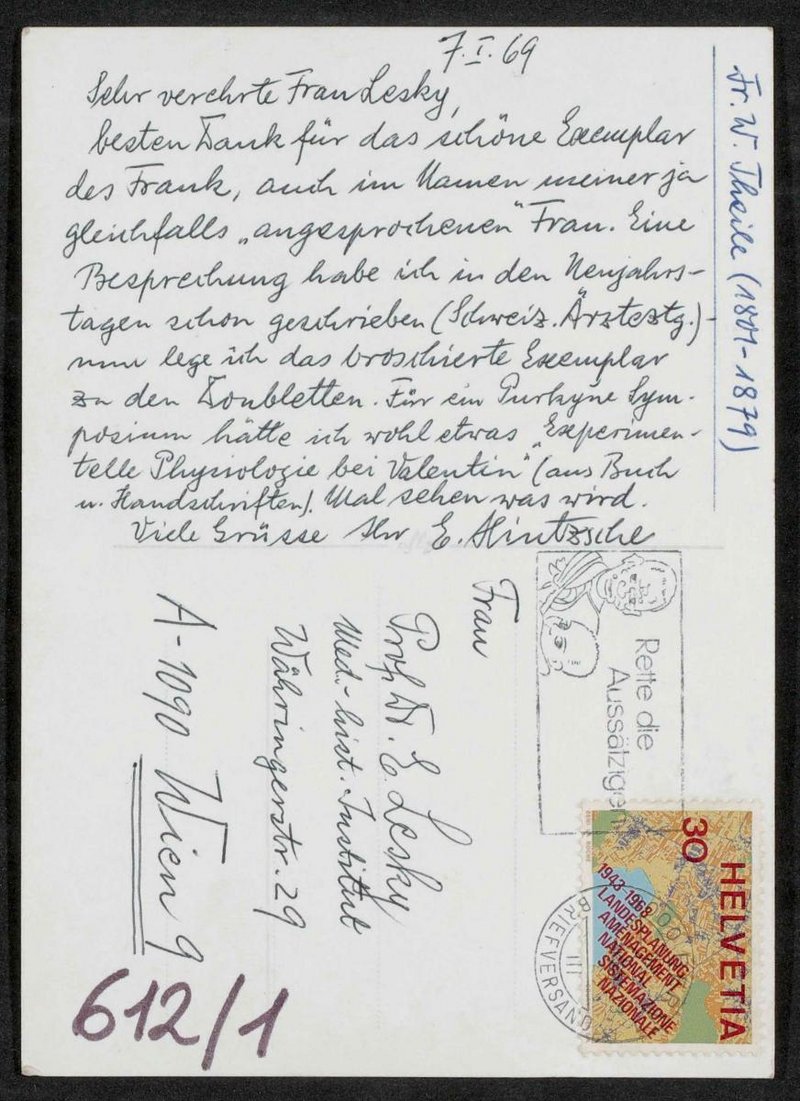 7.I.69
Sehr verehrte Frau Lesky,
besten Dank für das schöne Exemplar
des Frank, auch im Namen meiner ja
gleichfalls „angesprochenen“ Frau. Eine
Besprechung habe ich in den Neujahrs-
tagen schon geschrieben (Schweiz. Ärzteztg.) -
nun lege ich das broschierte Exemplar
zu den Doubletten. Für ein Purkyně Sym-
posium hätte ich wohl etwas „Experimen-
telle Physiologie bei Valentin“ (aus Buch
u. Handschriften). Mal sehen was wird.
Viele Grüsse Ihr E. Hintzsche
Fr. W. Theile (1801-1879)
Frau
Prof Dr. E Lesky
Med.-hist. Institut
Währingerstr. 29
A-1090 Wien 9
Rette die
Aussätzigen
HELVETIA
30
1943-1968
LANDESPLANUNG
AMENAGEMENT
NATIONAL
SISTEMAZIONE
NAZIONALE
BRIEFVERSAND
612/1